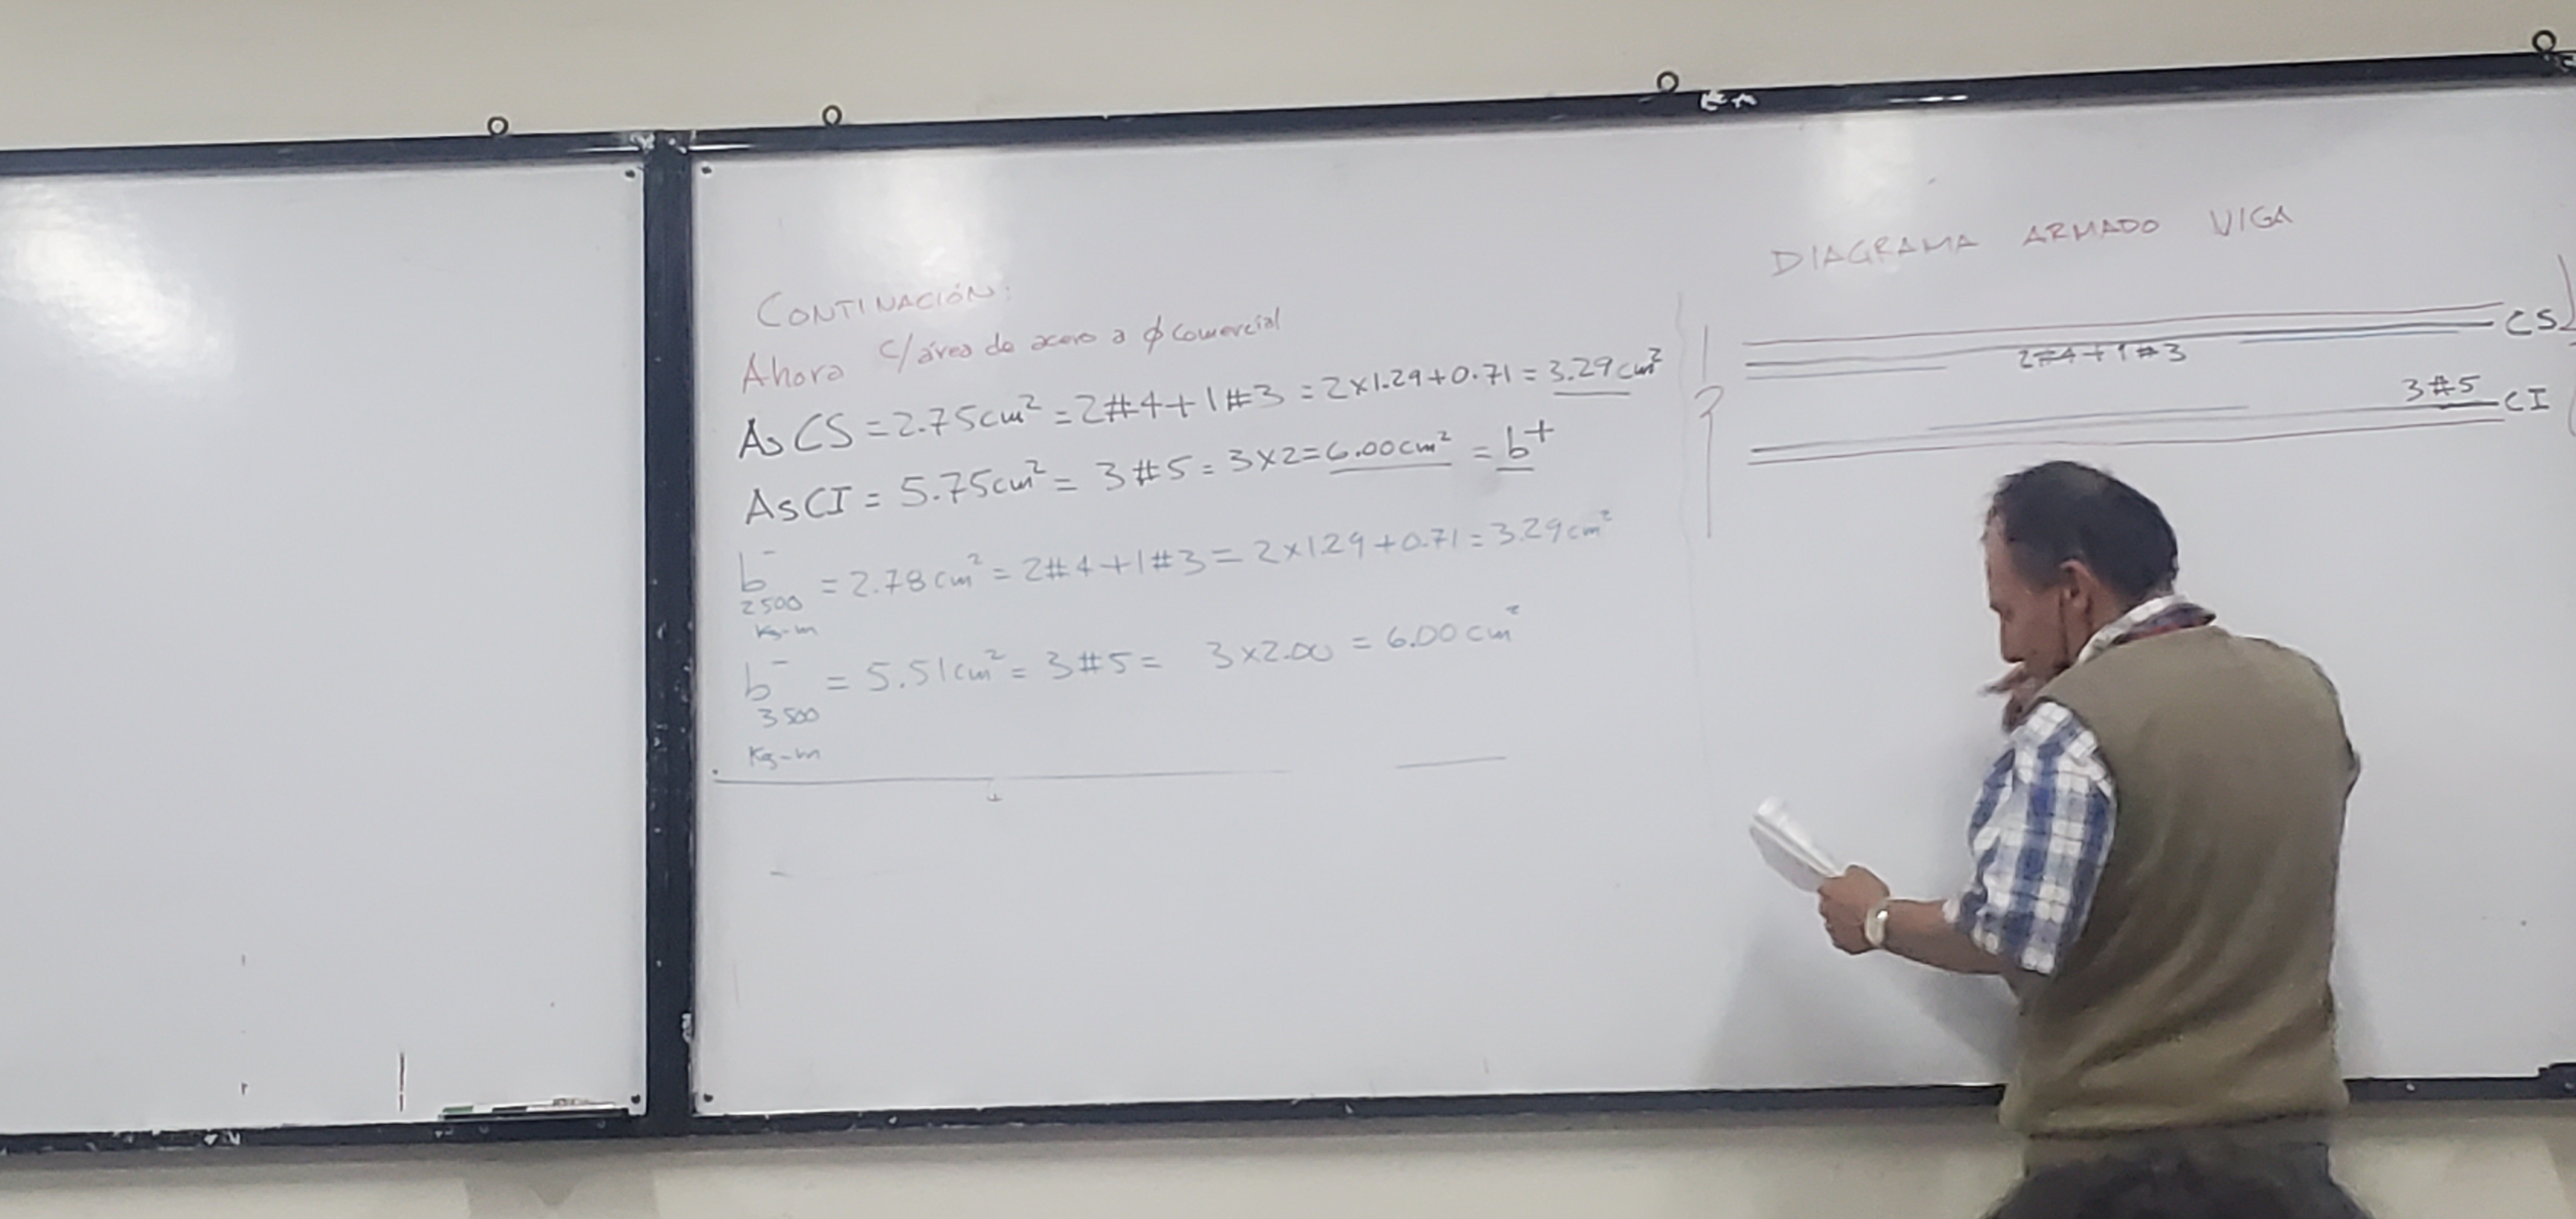 CONTINACIÓN:
Ahora c/área de acero a ϕ comercial
As CS = 2.75 cm² = 2#4 + 1#3 = 2x1.29 + 0.71 = 3.29 cm²
As CI = 5.75 cm² = 3#5 = 3x2 = 6.00 cm² = b⁺
b⁻ = 2.78 cm² = 2#4 + 1#3 = 2x1.29 + 0.71 = 3.29 cm²
2500
Kg-m
b⁻ = 5.51 cm² = 3#5 = 3x2.00 = 6.00 cm²
3500
Kg-m
DIAGRAMA ARMADO VIGA
CS
2#4 + 1#3
3#5
CI